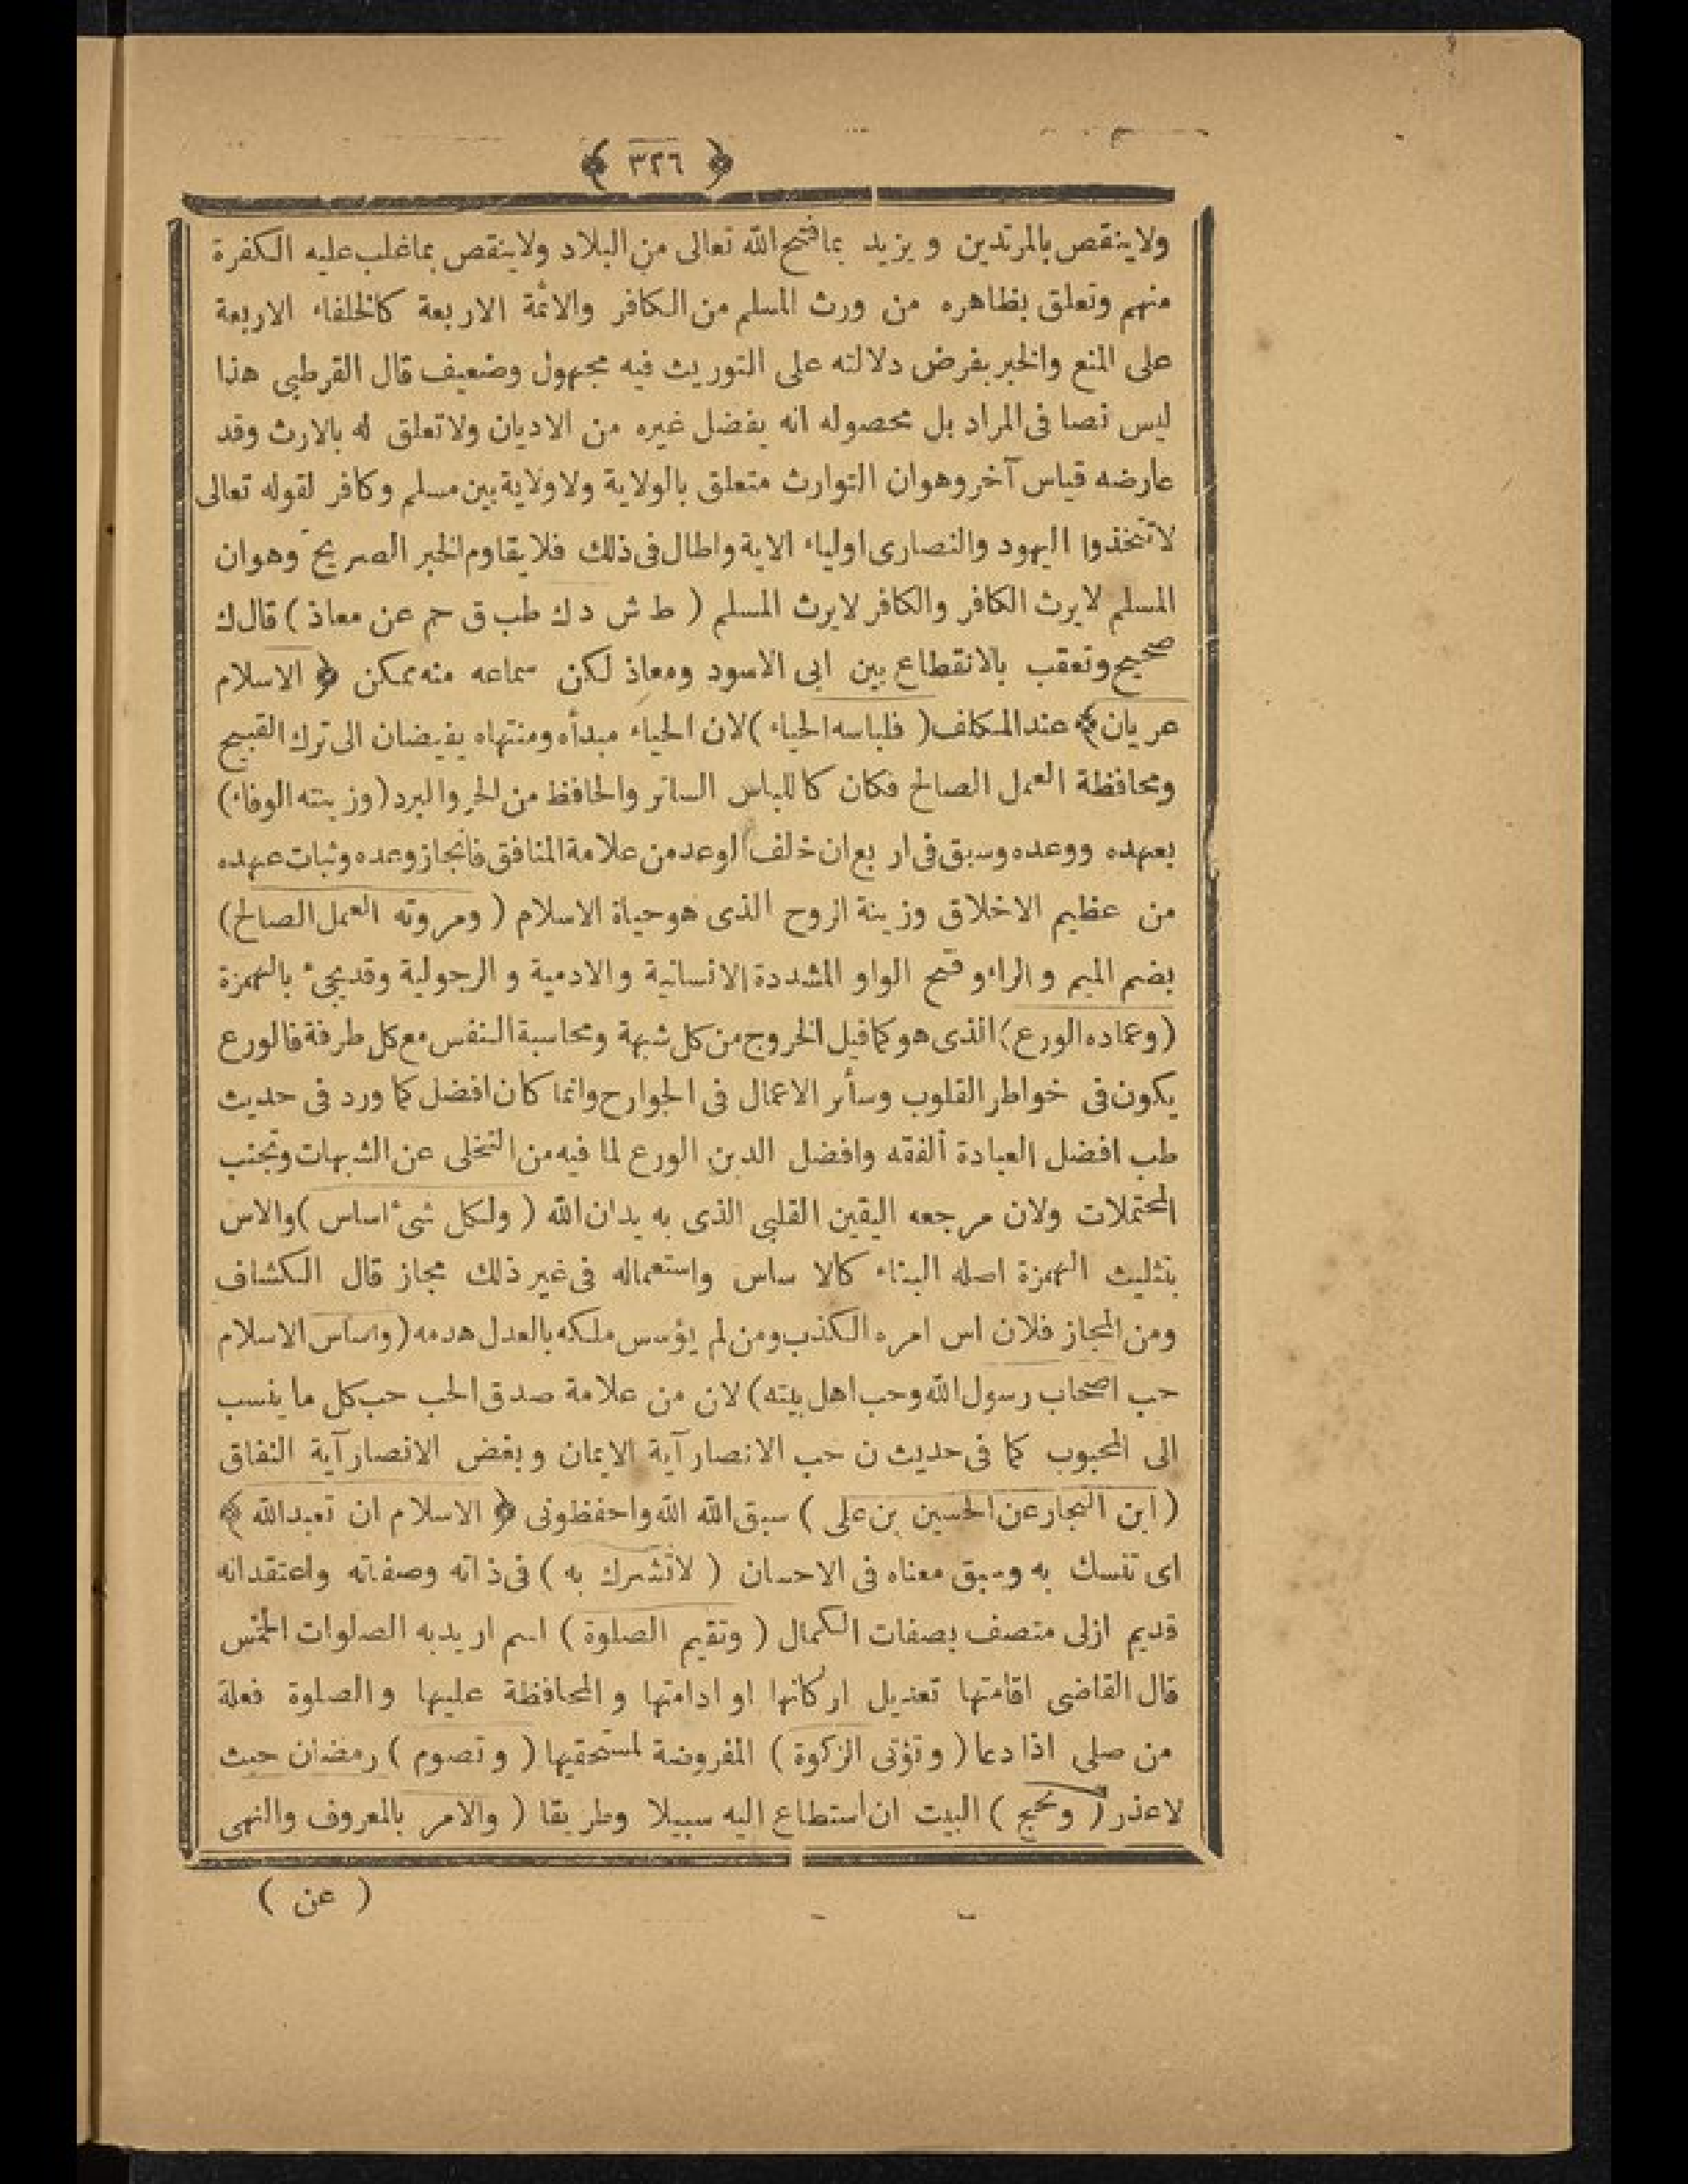 ﴿ ٣٢٦ ﴾
ولا ينقص بالمرتدين و يزيد بما فتح الله تعالى من البلاد ولا ينقص بما غلب عليه الكفرة
منهم وتعلق بظاهره من ورث المسلم من الكافر والائمة الاربعة كالخلفاء الاربعة
على المنع والخبر بفرض دلالته على التوريث فيه مجهول وضعيف قال القرطبى هذا
ليس نصا فى المراد بل محصوله انه يفضل غيره من الاديان ولا تعلق له بالارث وقد
عارضه قياس آخر وهو ان التوارث متعلق بالولاية ولا ولاية بين مسلم وكافر لقوله تعالى
لا تتخذوا اليهود والنصارى اولياء الاية واطال فى ذلك فلا يقاوم الخبر الصريح وهو ان
المسلم لا يرث الكافر والكافر لا يرث المسلم ( ط ش د ك طب ق حم عن معاذ ) قال ك
صحيح وتعقب بالانقطاع بين ابى الاسود ومعاذ لكن سماعه منه ممكن ﴿ الاسلام
عريان ﴾ عند المكلف ( فلباسه الحياء ) لان الحياء مبدأه ومنتهاه يفيضان الى ترك القبيح
ومحافظة العمل الصالح فكان كاللباس الساتر والحافظ من الحر والبرد ( وزينته الوفاء )
بعهده ووعده وسبق فى اربع ان خلف الوعد من علامة المنافق فانجاز وعده وثبات عهده
من عظيم الاخلاق وزينة الروح الذى هو حياة الاسلام ( ومروته العمل الصالح )
بضم الميم والراء و فتح الواو المشددة الانسانية والادمية و الرجولية وقد يجئ بالهمزة
( وعماده الورع ) الذى هو كما قيل الخروج من كل شبهة ومحاسبة النفس مع كل طرفة فالورع
يكون فى خواطر القلوب وسأر الاعمال فى الجوارح وانما كان افضل كما ورد فى حديث
طب افضل العبادة ألفقه وافضل الدين الورع لما فيه من التخلى عن الشبهات وتجنب
المحتملات ولان مرجعه اليقين القلبى الذى به يدان الله ( ولكل شئ اساس ) والاس
بتثليث الهمزة اصله البناء كالا ساس واستعماله فى غير ذلك مجاز قال الكشاف
ومن المجاز فلان اس امره الكذب ومن لم يؤسس ملكه بالعدل هدمه ( واساس الاسلام
حب اصحاب رسول الله وحب اهل بيته ) لان من علامة صدق الحب حب كل ما ينسب
الى المحبوب كما فى حديث ن حب الانصار آية الايمان وبغض الانصار آية النفاق
( ابن النجار عن الحسين بن على ) سبق الله الله واحفظونى ﴿ الاسلام ان تعبد الله ﴾
اى تنسك به وسبق معناه فى الاحسان ( لا تشرك به ) فى ذاته وصفاته واعتقد انه
قديم ازلى متصف بصفات الكمال ( وتقيم الصلوة ) اسم اريد به الصلوات الخمس
قال القاضى اقامتها تعديل اركانها او ادامتها و المحافظة عليها والصلوة فعلة
من صلى اذا دعا ( وتؤتى الزكوة ) المفروضة لمستحقيها ( وتصوم ) رمضان حيث
لا عذر ( وتحج ) البيت ان استطاع اليه سبيلا وطريقا ( والامر بالمعروف والنهى
( عن )